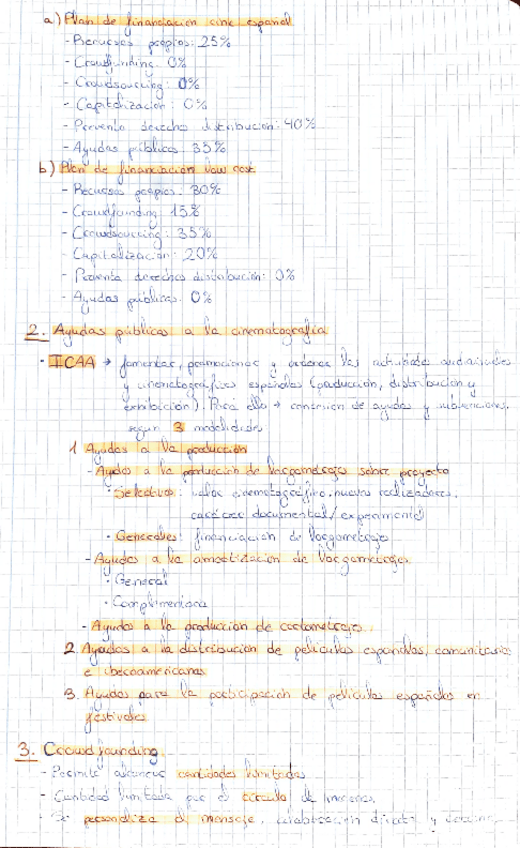 a) Plan de financiación cine español
- Recursos propios: 25%
- Crowfunding: 0%
- Crowdsourcing: 0%
- Capitalización: 0%
- Preventa derechos distribución: 40%
- Ayudas públicas: 35%
b) Plan de financiación low cost
- Recursos propios: 30%
- Crowdfounding: 15%
- Crowdsourcing: 35%
- Capitalización: 20%
- Preventa derechos distribución: 0%
- Ayudas públicas: 0%
2. Ayudas públicas a la cinematografía
· ICAA → fomentar, promocionar y ordenar las actividades audiovisuales
y cinematográficas españolas (producción, distribución y
exhibición). Para ello → concesión de ayudas y subvenciones,
según 3 modalidades
1 Ayudas a la producción
- Ayudas a la producción de largometraje sobre proyecto
· Selectivas: valor cinematográfico, nuevos realizadores,
carácter documental / experimental
· Generales: financiación de largometraje
- Ayudas a la amortización de largometrajes
· General
· Complementaria
- Ayudas a la producción de cortometrajes.
2. Ayudas a la distribución de películas españolas, comunitarias
e iberoamericanas
3. Ayudas para la participación de películas españolas en
festivales
3. Crowdfounding.
- Permite alcanzar cantidades limitadas
- Cantidad limitada por el círculo de
- Se personaliza el mensaje, colaboración directa y